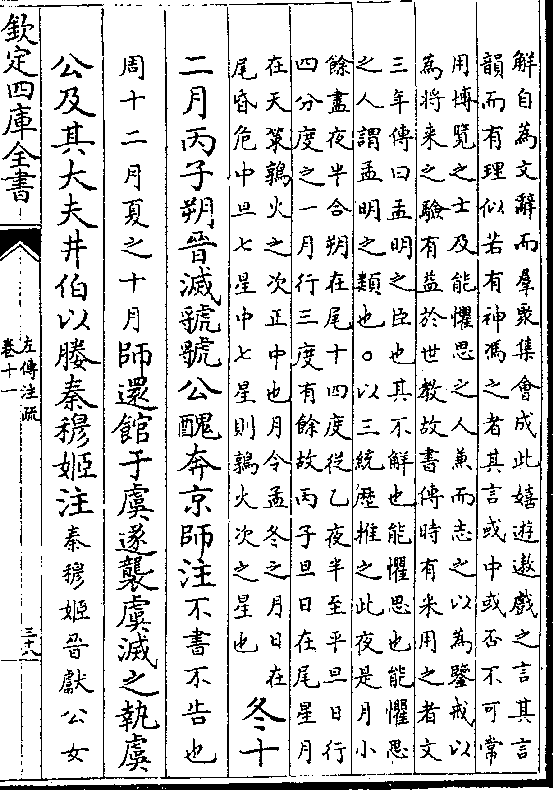 解自為文辭而羣衆集會成此嬉遊遨戲之言其言
韻而有理似若有神馮之者其言或中或否不可常
用博覽之士及能懼思之人兼而志之以為鑒戒以
為將来之驗有益於世教故書傳時有采用之者文
三年傳曰孟明之臣也其不解也能懼思也能懼思
之人謂孟明之類也○以三統歷推之此夜是月小
餘盡夜半合朔在尾十四度從乙夜半至平旦日行
四分度之一月行三度有餘故丙子旦日在尾星月
在天策鶉火之次正中也月令孟冬之月日在
尾昏危中旦七星中七星則鶉火次之星也
冬十
二月丙子朔晉滅虢虢公醜奔京師注不書不告也
周十二月夏之十月師還館于虞遂襲虞滅之執虞
公及其大夫井伯以媵秦穆姬注秦穆姬晉獻公女
欽定四庫全書
左傳注疏
卷十一
三十八